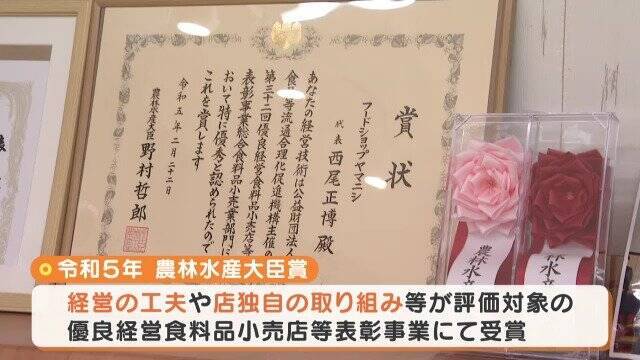 賞状
フードショップヤマニシ
代表 西尾正博殿
あなたの経営技術は公益財団法人
食品等流通合理化促進機構主催の
第三十二回優良経営食料品小売店等
表彰事業総合食料品小売業部門に
おいて特に優秀と認められたので
これを賞します
令和五年二月二十二日
農林水産大臣 野村哲郎
農林水
農林水
令和5年 農林水産大臣賞
経営の工夫や店独自の取り組み等が評価対象の
優良経営食料品小売店等表彰事業にて受賞